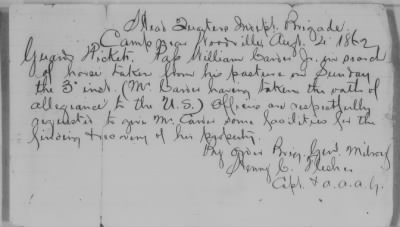 Head Quarters Indept. Brigade
Camp near Woodville Aug. 2. 1862
Guards & Pickets. Pass William Carver Jr. in search
of horse taken from his pasture on Sunday
the 3d inst. (Mr. Carver having taken the oath of
allegiance to the U.S.) Officers are respectfully
requested to give Mr. Carver some facilities for the
finding & recovery of his property.
By order Brig. Genl. Milroy
Henry C.
Capt. & a.a.a.G.